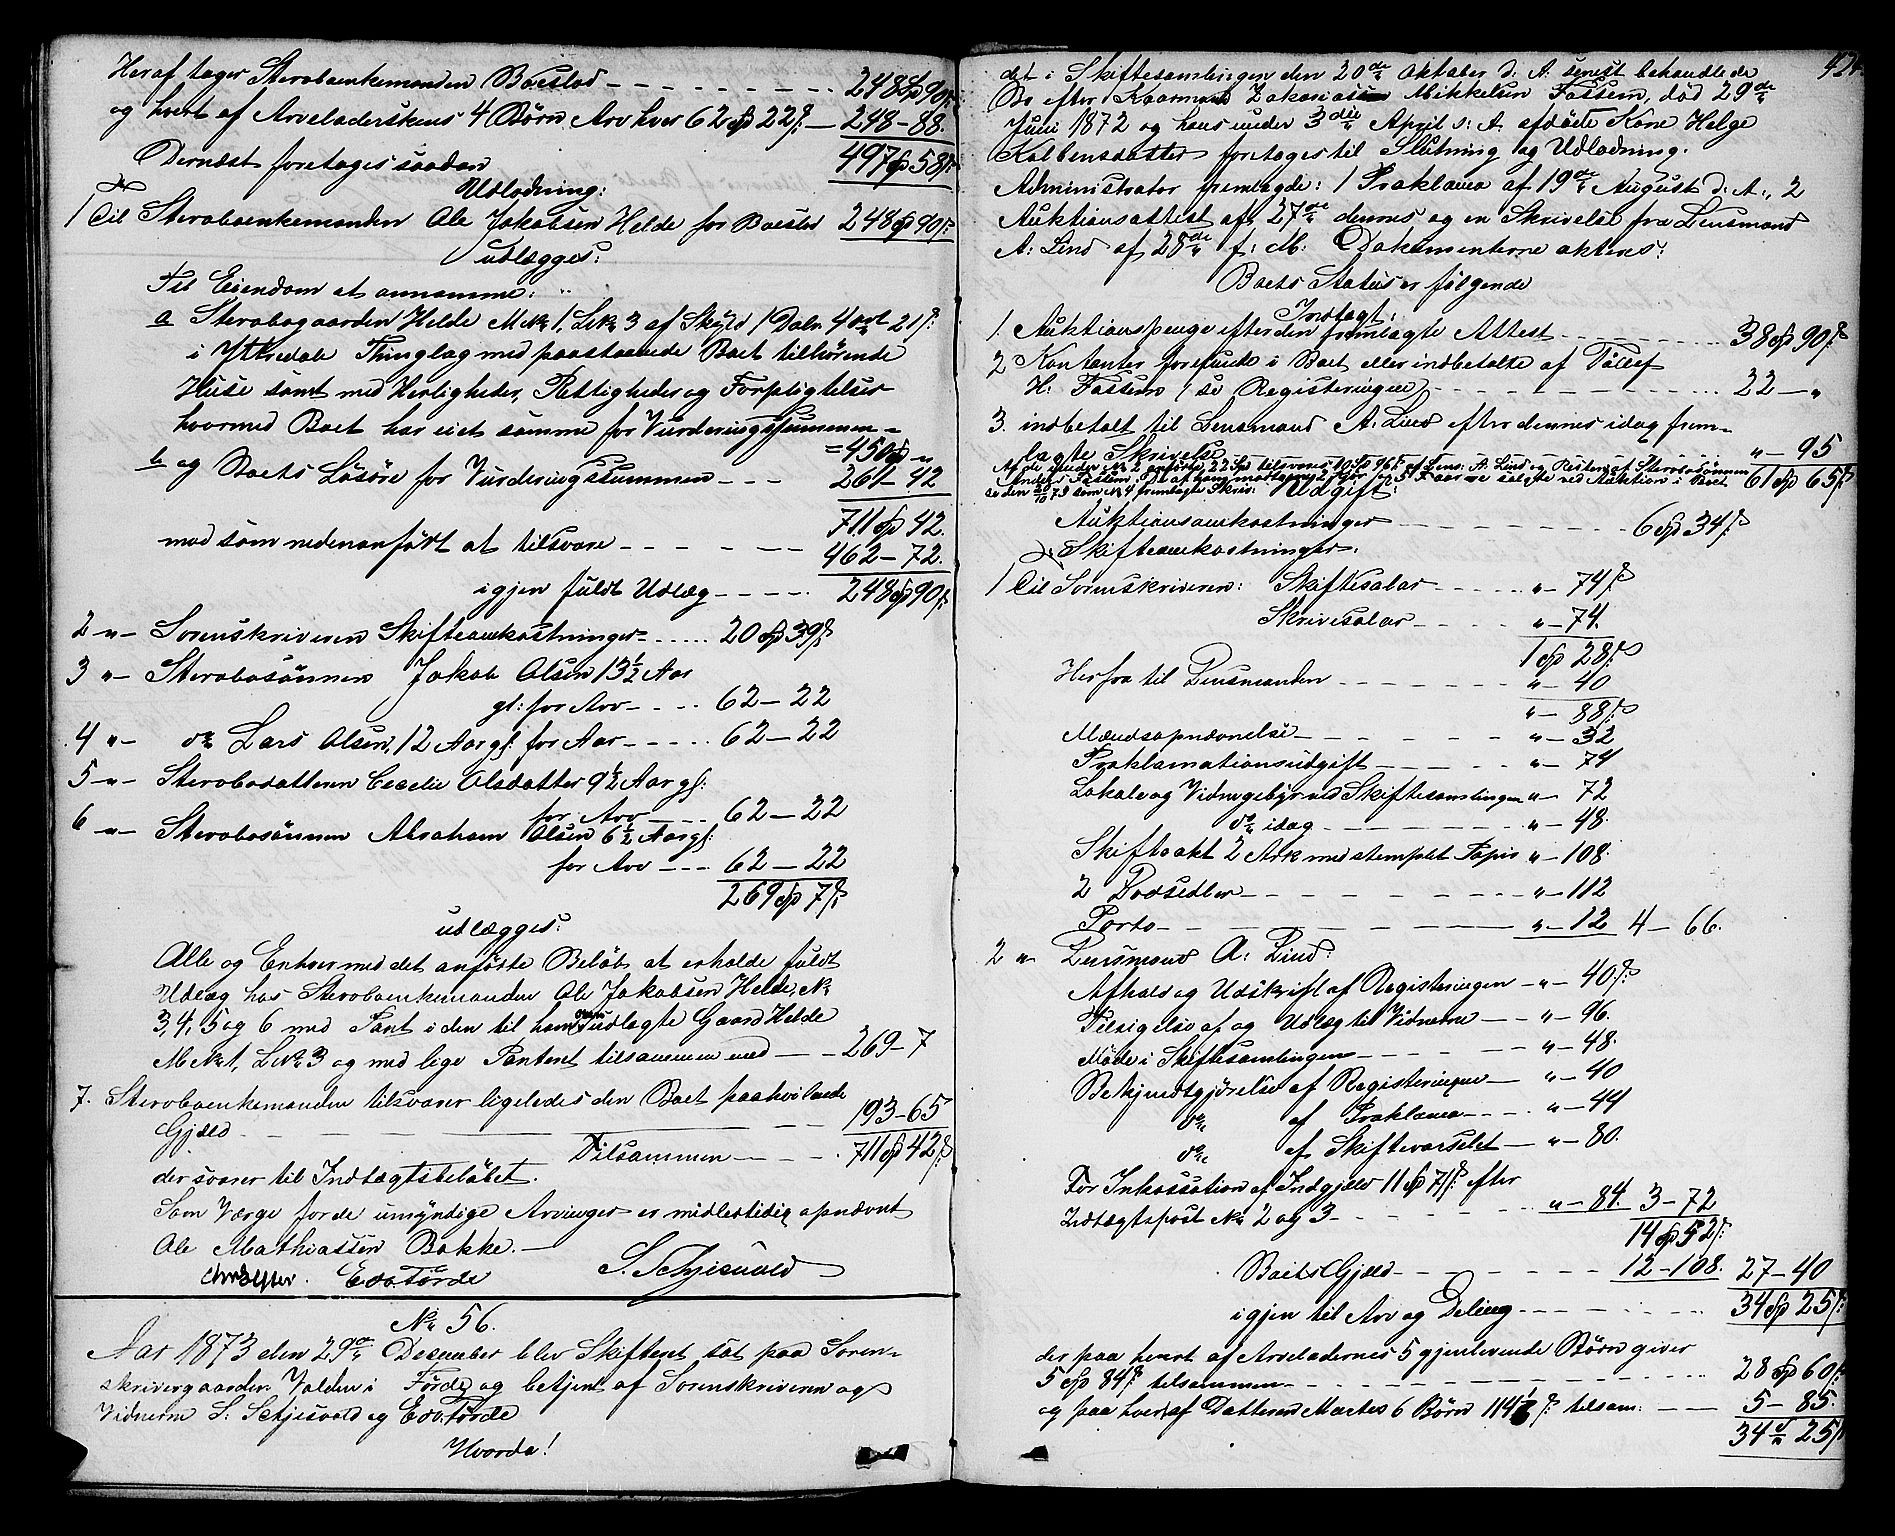 Heraf tager Sterboenkemanden Boeslod 248 Sp 90 ß
og hvert af Arveladerskens 4 Børn Arv hver 62 Sp 22 ß. — 248 - 88.
Dernæst foretoges saadan 497 Sp 58 ß
Udlodning:
1 Til Sterboenkemanden Ole Jakobsen Helde for Boeslod 248 Sp 90 ß.
udlægges:
Til Eiendom at annamme:
a Sterbogaarden Helde M. No 1, L. No 3 af Skyld 1 Daler 4 ort 21 ß.
i Ytredals Thinglag med paastaaende Boet tilhørende
Huse samt med Herligheder, Rettigheder og Forpligtelser
hvormed Boet har eiet samme for Vurderingssummen =
= 450 Sp „
b og Boets Løsøre for Vurderingssummen - - - 261 - 42
711 Sp 42.
mod som nedenanført at tilsvare - - - - 462 - 72.
igjen fuldt Udlæg - - - - . 248 Sp 90 ß
2 „ Sorenskriveren Skifteomkostninger - ..... 20 Sp 39 ß
3 „ Sterbosønnen Jakob Olsen 13½ Aar
gl: for Arv - - - - 62 - 22
4 „ do Lars Olsen, 12 Aar gl. for Arv - - - - . 62 - 22
5 „ Sterbodatteren Cecelie Olsdatter 9½ Aar gl:
for Arv - - - 62 - 22
6 „ Sterbosønnen Abraham Olsen 6½ Aar gl:
for Arv - - - 62 - 22
269 Sp 7 ß
udlægges:
Alle og Enhver med det anførte Beløb at erholde fuldt
Udlæg hos Sterboenkemanden Ole Jakobsen Helde, No
3, 4, 5 og 6 med Pant i den til ham udlagte Gaard Helde
M. No 1, L. No 3 og med lige Panteret tilsammen med - - - 269 - 7
7. Sterboenkemanden tilsvarer ligeledes den Boet paahvilende
Gjæld - - - 193 - 65
Tilsammen - - - - . 711 Sp 42 ß
der svarer til Indtægtsbeløbet.
Som Værge for de umyndige Arvinger er midlertidig opnævnt
Ole Mathiassen Bakke. —
Edv. Førde S. Schjesvold
No 56.
Aar 1873 den 29de December blev Skifteret sat paa Soren=
skrivergaarden Halden i Førde og betjent af Sorenskriveren og
Vidnerne S. Schjesvold og Edv. Førde
Hvorda!
424.
det i Skiftesamlingen den 20de Oktober d. A. senest behandlede
Bo efter Kaarmand Zakarias Mikkelsen Fossem, død 29de
Juli 1872 og hans under 3die April s. A. afdøde Kone Helge
Kolbensdatter foretoges til Slutning og Udlodning.
Administrator fremlagde: 1 Proklama af 19de August d. A., 2
Auktionsattest af 27de dennes og en Skrivelse fra Lensmand
A. Lind af 28de f. M. Dokumenterne akteres:
Boets Status er følgende
Indtægt:
1. Auktionspenge efter den fremlagte Attest - - - 38 Sp 90 ß
2 Kontanter forefunde i Boet eller indbetalte af Tollef
H. Fossem (se Registreringen) - - - 22 — „
3. indbetalt til Lensmand A. Lind efter dennes idag frem=
lagte Skrivelse - - - „ - 95
61 Sp 65 ß
Udgift:
Auktionsomkostninger - - - 6 Sp 34 ß
Skifteomkostninger:
1 Til Sorenskriveren: Skiftesalar - - - „ - 74 ß
Skrivesalar - - - „ - 74.
1 Sp 28 ß
Herfra til Lensmanden - - - „ - 40
„ - 88 ß
Mændsopnævnelse - - - „ - 32
Proklamationsudgift - - - „ - 74
Lokale og Vidnegebyr ved Skiftesamlingen „ - 72
do idag - - - „ - 48.
Skifteakt 2 Ark med stemplet Papir „ - 108.
2 Lodsedler - - - „ - 112
Porto - - - „ - 12 4 - 66.
2 „ Lensmand A. Lind:
Afhold og Udskrift af Registreringen - „ - 40 ß
Tilsigelse af og Udlæg til Vidnerne — „ - 96.
Møde i Skiftesamlingen - - - „ - 48.
Bekjendtgjørelse af Registreringen — „ - 40
do af Proklama - - - „ - 44
do af Skiftevarselet — „ - 80.
For Inkassation af Indgjæld 11 Sp 71 ß efter
Indtægtspost No 2 og 3 - - - „ - 84. 3 - 72
14 Sp 52 ß
Boets Gjæld - - - 12 - 108. 27 - 40
igjen til Arv og Deling - - - 34 Sp 25 ß
der paa hvert af Arveladernes 5 gjenlevende Børn giver
5 Sp 84 ß tilsammen - - - 28 Sp 60 ß
og paa hver af Datteren Martes 6 Børn 114 ß tilsam: - - 5 - 85.
34 Sp 25 ß